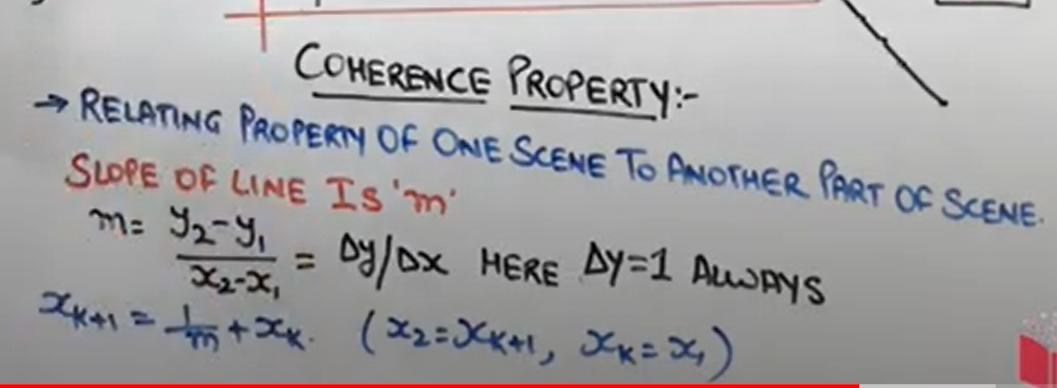 COHERENCE PROPERTY:-
→ RELATING PROPERTY OF ONE SCENE TO ANOTHER PART OF SCENE.
SLOPE OF LINE IS 'm'
m = y₂-y₁/x₂-x₁ = Δy/Δx HERE Δy=1 ALWAYS
xₖ₊₁ = 1/m + xₖ. (x₂=xₖ₊₁, xₖ=x₁)